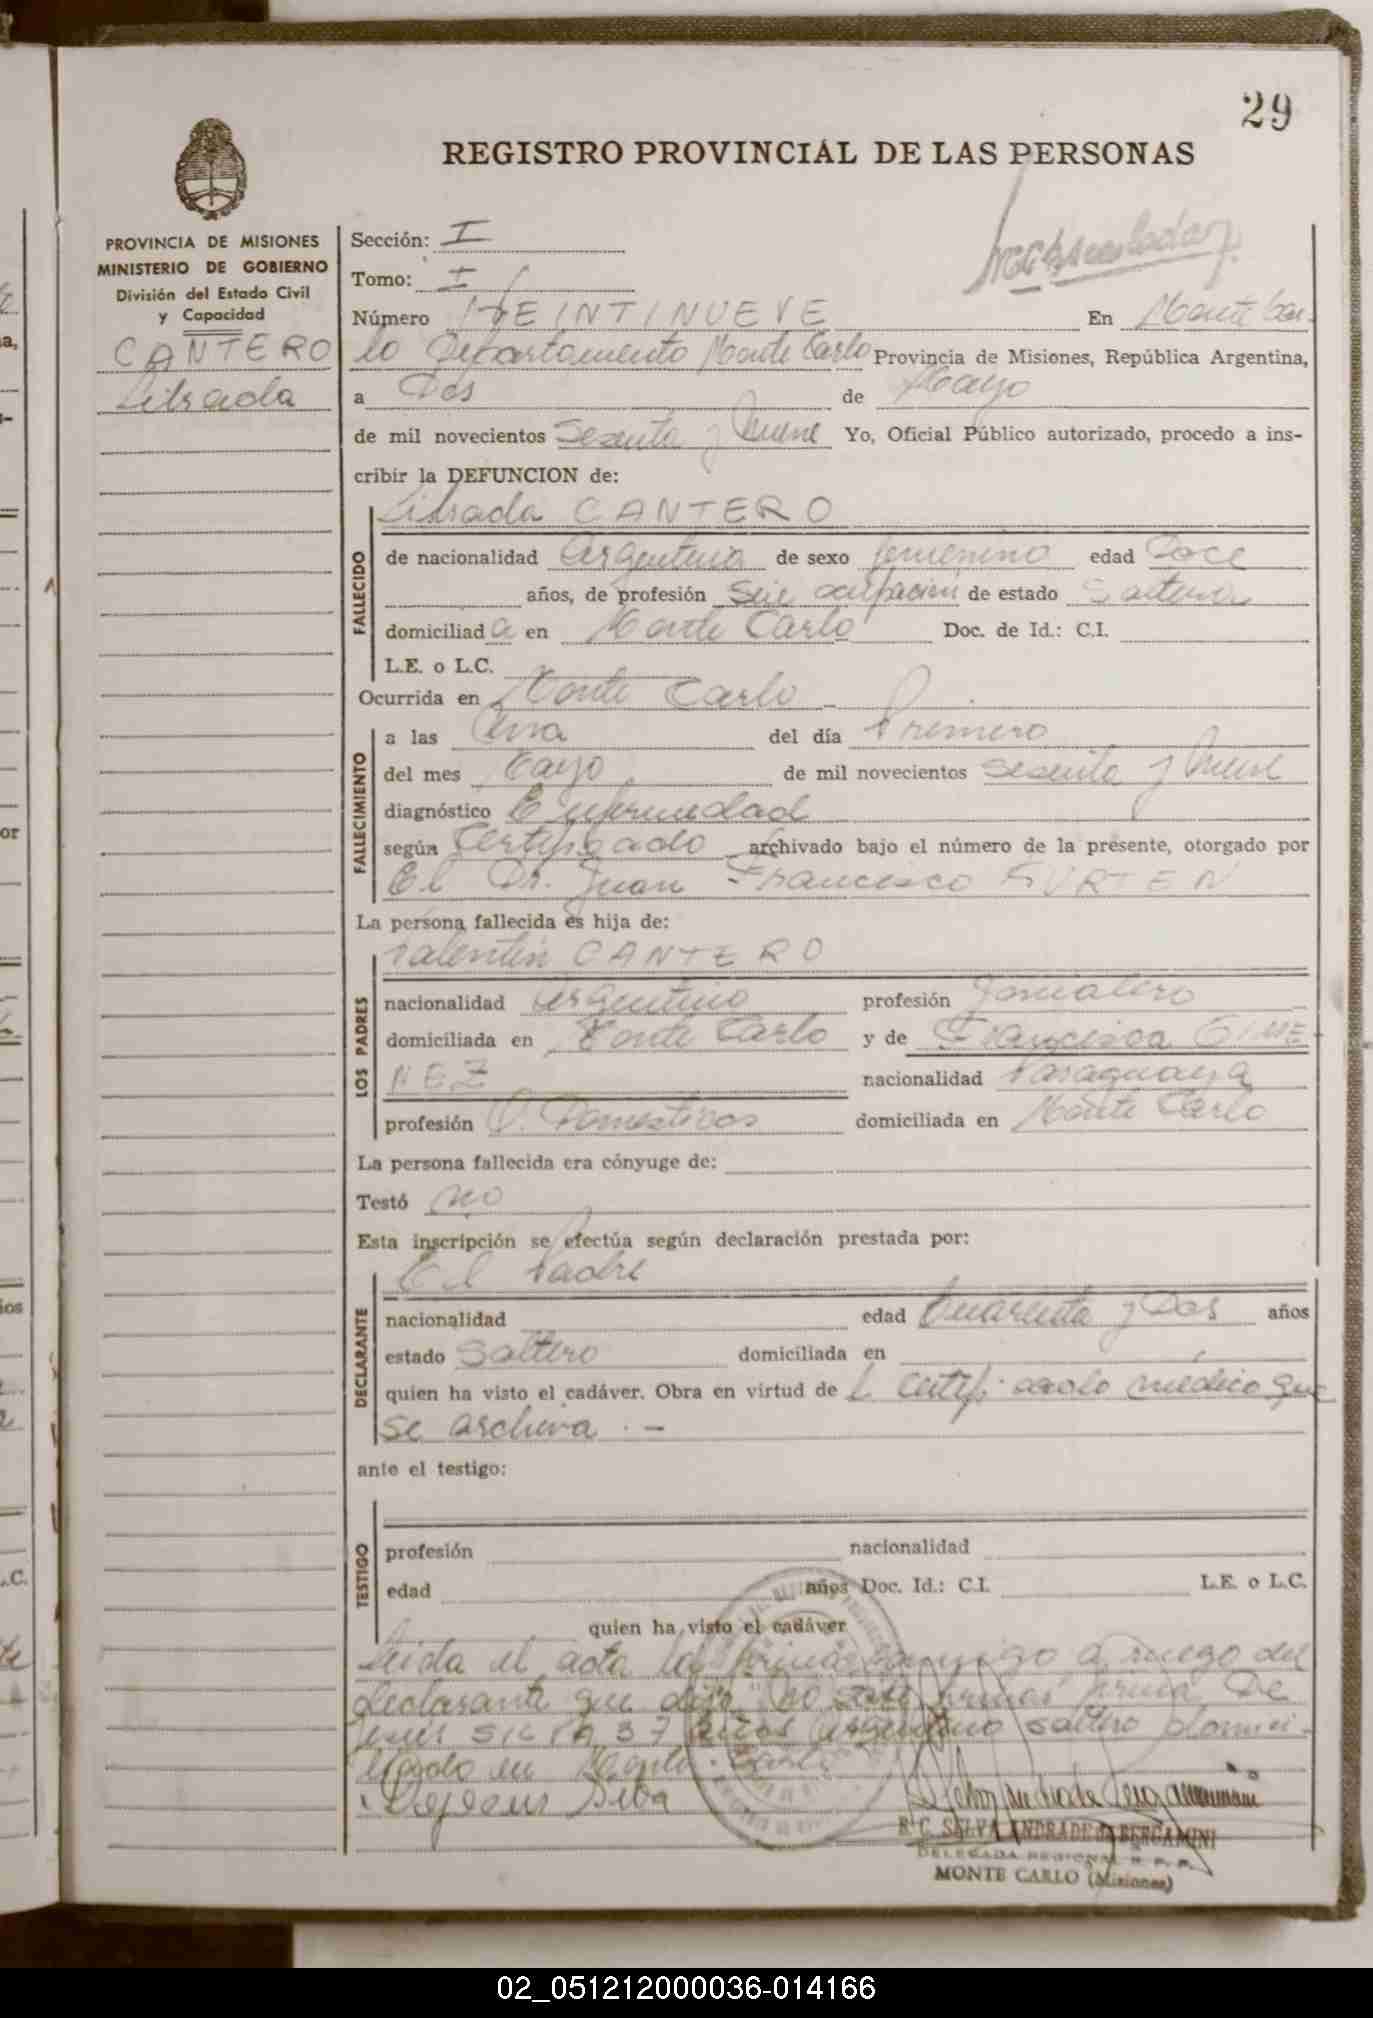 29
REGISTRO PROVINCIAL DE LAS PERSONAS
PROVINCIA DE MISIONES
MINISTERIO DE GOBIERNO
División del Estado Civil
y Capacidad
CANTERO
Librada
Sección: I
Tomo: I
Número VEINTINUEVE En Monte Car-
lo Departamento Monte Carlo Provincia de Misiones, República Argentina,
a Dos de Mayo
de mil novecientos Sesenta y Nueve Yo, Oficial Público autorizado, procedo a ins-
cribir la DEFUNCION de:
Librada CANTERO
FALLECIDO
de nacionalidad Argentina de sexo femenino edad Doce
años, de profesión Sin ocupación de estado Soltera
domiciliada en Monte Carlo Doc. de Id.: C.I.
L.E. o L.C.
Ocurrida en Monte Carlo
FALLECIMIENTO
a las Una del día Primero
del mes Mayo de mil novecientos Sesenta y Nueve
diagnóstico Enfermedad
según Certificado archivado bajo el número de la presente, otorgado por
El Dr. Juan Francisco KURTEN
La persona fallecida es hija de:
Valentín CANTERO
LOS PADRES
nacionalidad Argentino profesión Jornalero
domiciliada en Monte Carlo y de Francisca GIME-
NEZ nacionalidad Paraguaya
profesión Q. Domesticos domiciliada en Monte Carlo
La persona fallecida era cónyuge de:
Testó no
Esta inscripción se efectúa según declaración prestada por:
El Padre
DECLARANTE
nacionalidad edad Cuarenta y Dos años
estado Soltero domiciliada en
quien ha visto el cadáver. Obra en virtud de l certificado médico que
se archiva . -
ante el testigo:
TESTIGO
profesión nacionalidad
edad años Doc. Id.: C.I. L.E. o L.C.
quien ha visto el cadáver
Leida el acta la firma conmigo a ruego del
declarante que dijo no saber firmar De
Jesús SILVA 37 años argentino soltero domici-
liado en Monte Carlo
Dejesus Silva
R. C. SELVA ANDRADE de BERGAMINI
DELEGADA REGIONAL R. P. P.
MONTE CARLO (Misiones)
02_051212000036-014166